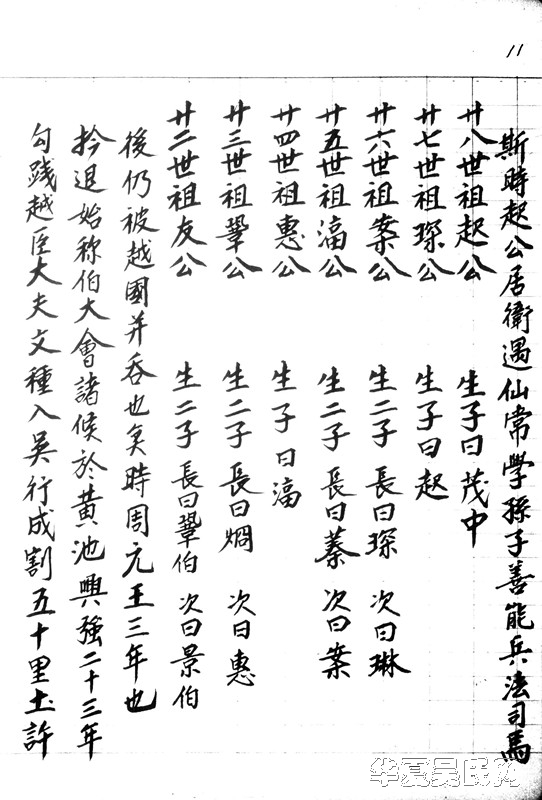 11
勾踐越臣大夫文種入吳行成割五十里土許
退始称伯大會諸候於黃池興強二十三年
後仍被越國并吞也矣時周元王三年也
廿二世祖友公 生二子 長曰鞏伯 次曰景伯
廿三世祖鞏公 生二子 長曰烱 次曰惠
廿四世祖惠公 生子曰
廿五世祖公 生二子 長曰蓁 次曰案
廿六世祖案公 生二子 長曰琛 次曰琳
廿七世祖琛公 生子曰起
廿八世祖起公 生子曰茂中
斯時起公居衛遇仙常學孫子善能兵法司馬
华夏吴氏网